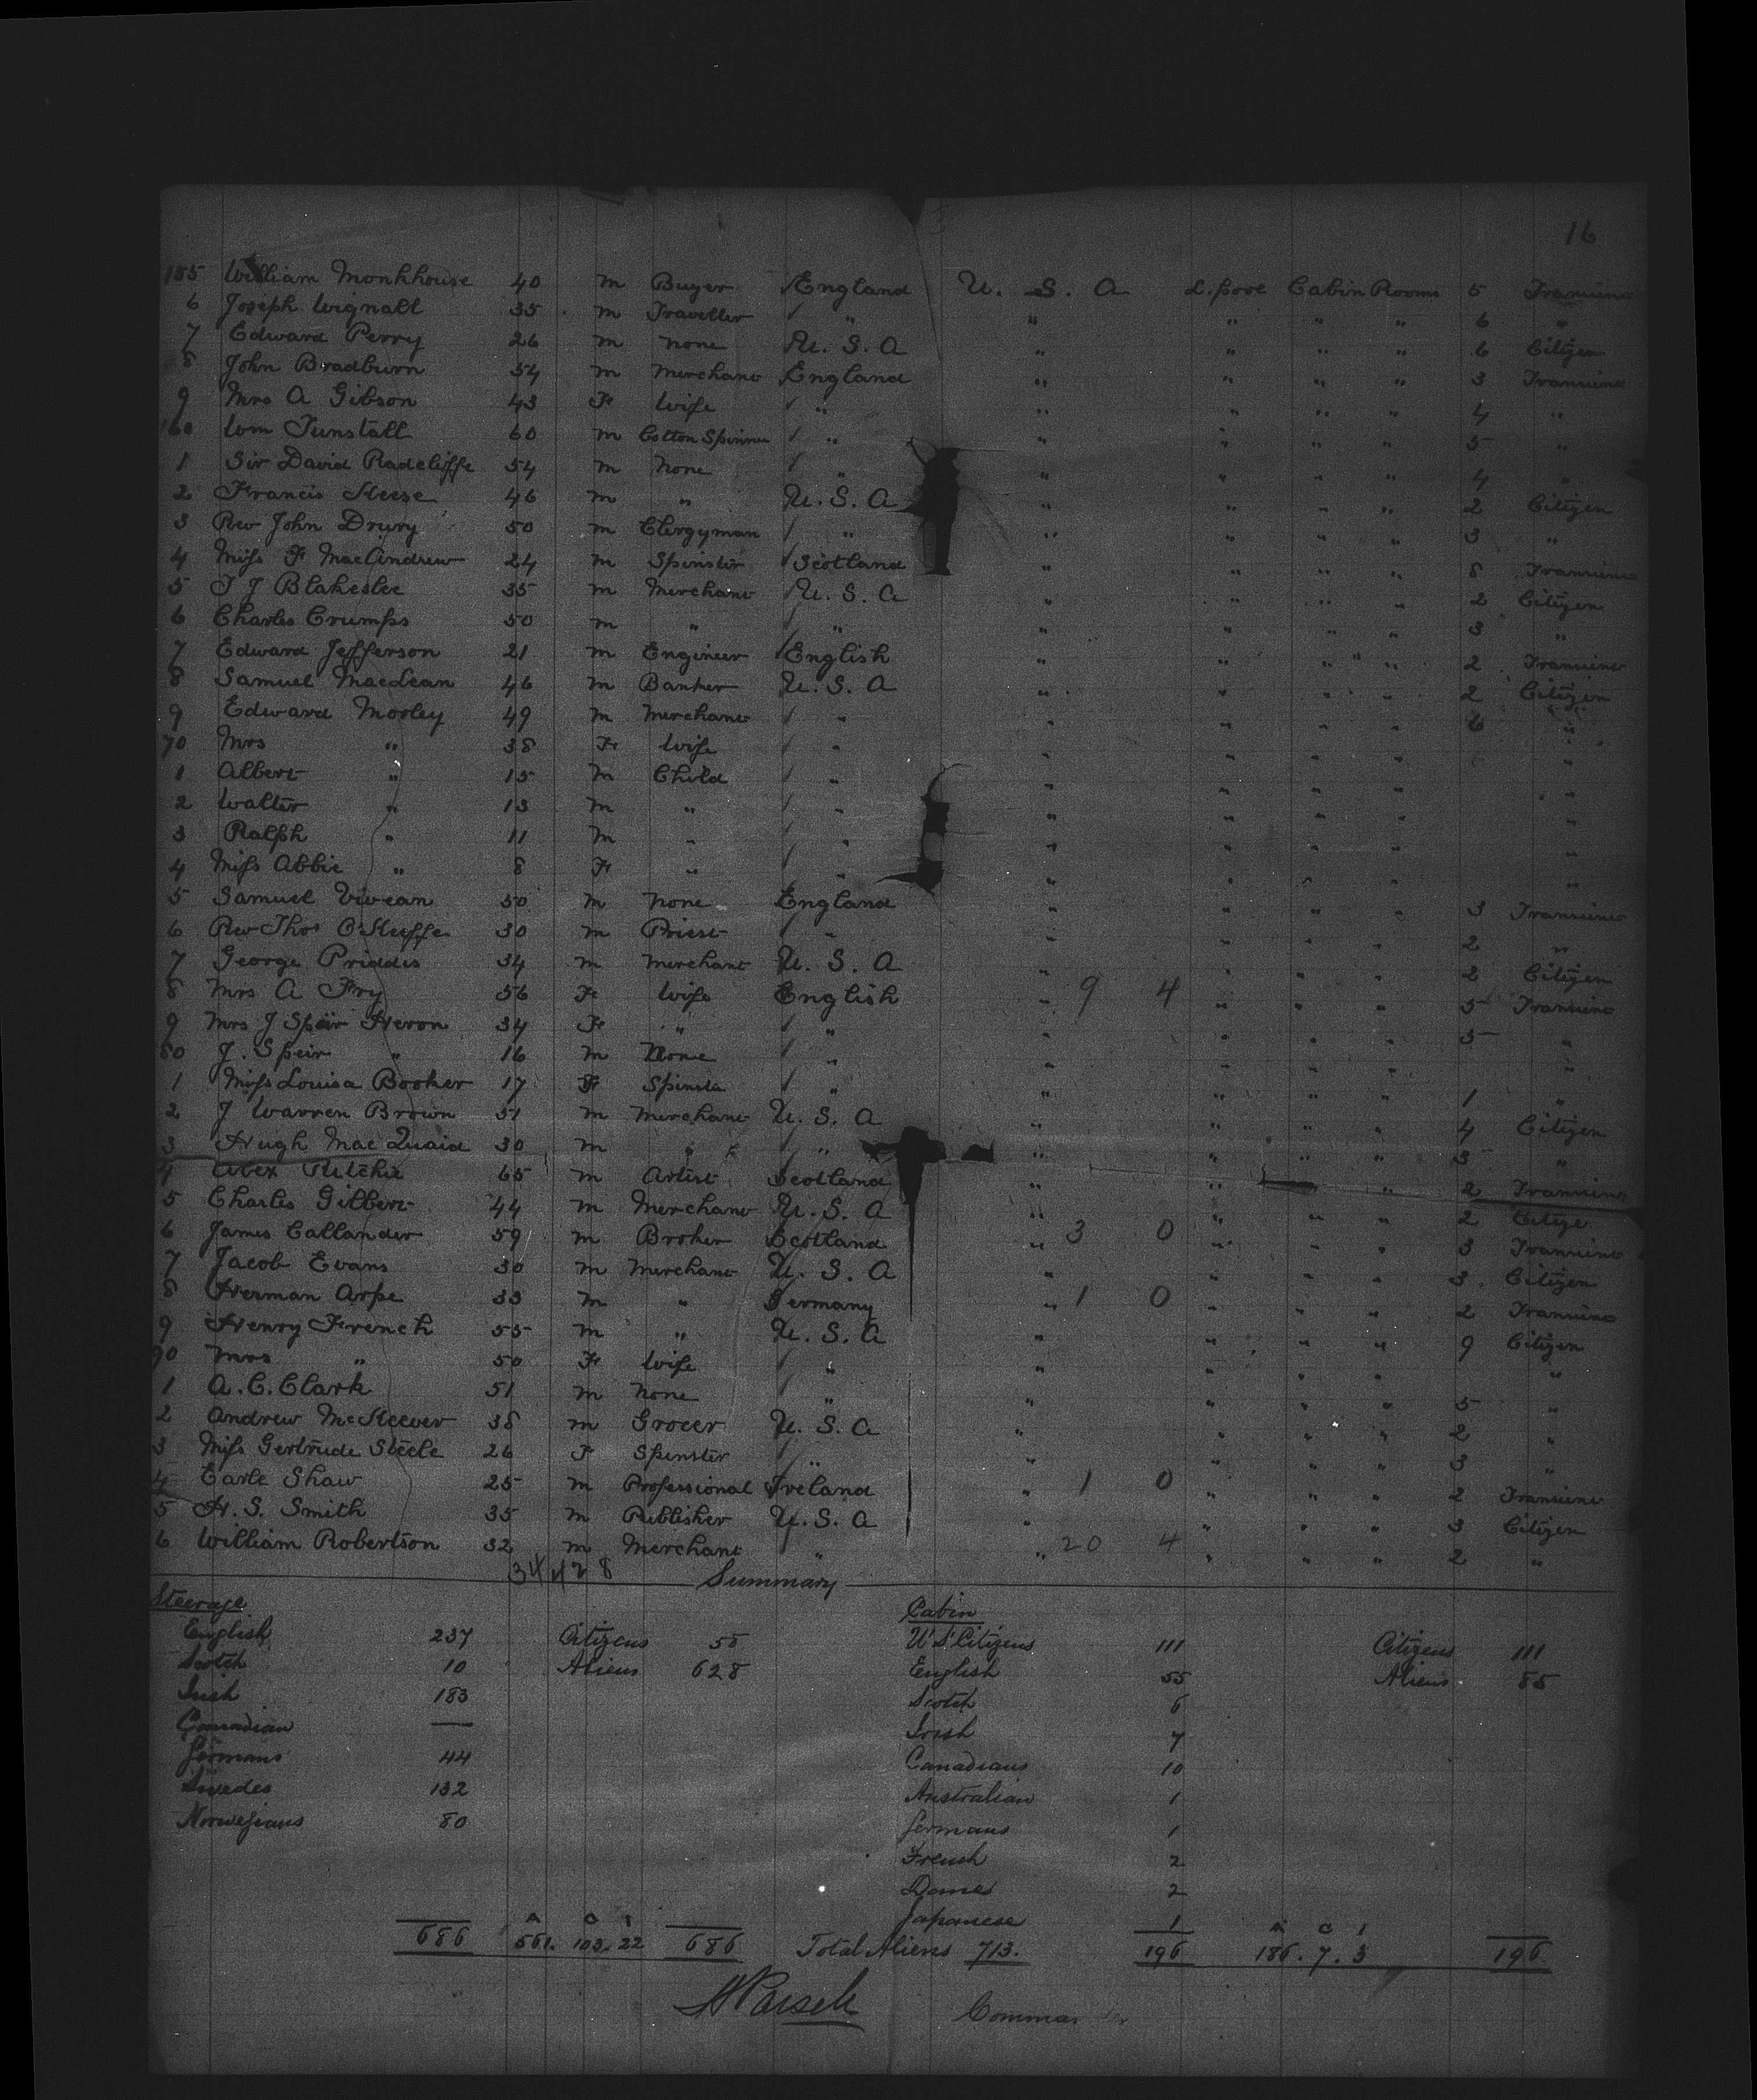 16
155 William Monkhouse 40 m Buyer England U. S. A L.pool Cabin Rooms 5 Transient
6 Joseph Wignall 35 m Traveller " " " " " 6 "
7 Edward Perry 26 m none U. S. A " " " " 6 Citizen
8 John Bradburn 34 m Merchant England " " " " 3 Transient
9 Mrs A Gibson 43 F Wife " " " " " 4 "
160 Wm Tunstall 60 m Cotton Spinner " " " " " 5 "
1 Sir David Radcliffe 54 m None " " " " " 4 "
2 Francis Keese 46 m " U. S. A " " " " 2 Citizen
3 Rev John Drury 50 m Clergyman " " " " " 3 "
4 Miss F MacAndrew 24 m Spinster Scotland " " " " 8 Transient
5 T J Blakeslee 35 m Merchant U. S. A " " " " 2 Citizen
6 Charles Crumps 50 m " " " " " " 3 "
7 Edward Jefferson 21 m Engineer English " " " " 2 Transient
8 Samuel MacLean 46 m Banker U. S. A " " " " 2 Citizen
9 Edward Mosley 49 m Merchant " " " " " 6 "
70 Mrs " 38 F Wife " " " " " "
1 Albert " 15 m Child " " " " " "
2 Walter " 13 m " " " " " " "
3 Ralph " 11 m " " " " " " "
4 Miss Abbie " 8 F " " " " " " "
5 Samuel Vivean 50 m None England " " " " 3 Transient
6 Rev Thos O'Keeffe 30 m Priest " " " " " 2 "
7 George Priddis 34 m Merchant U. S. A " " " " 2 Citizen
8 Mrs A Fry 56 F Wife English " 9 4 " " " 5 Transient
9 Mrs J Speir Heron 34 F " " " " " " 5 "
80 J. Speir " 16 m None " " " " " "
1 Miss Louisa Booker 17 F Spinster " " " " " 1 "
2 J Warren Brown 51 m Merchant U. S. A " " " " 4 Citizen
3 Hugh MacQuaid 30 m " " " " " " 3 "
4 Alex Ritchie 65 m Artist Scotland " " " " 2 Transient
5 Charles Gilbert 44 m Merchant U. S. A " " " " 2 Citize
6 James Callander 59 m Broker Scotland " 3 0 " " " 3 Transient
7 Jacob Evans 30 m Merchant U. S. A " " " " 3 Citizen
8 Herman Arpe 33 m " Germany " 1 0 " " " 2 Transient
9 Henry French 55 m " U. S. A " " " " 9 Citizen
90 Mrs " 50 F Wife " " " " " "
1 A. C. Clark 51 m None " " " " " 5 "
2 Andrew McKeever 38 m Grocer U. S. A " " " " 2 "
3 Miss Gertrude Steele 26 F Spinster " " " " " 3 "
4 Earle Shaw 25 m Professional Ireland " 1 0 " " " 2 Transient
5 H. S. Smith 35 m Publisher U. S. A " " " " 3 Citizen
6 William Robertson 32 m Merchant " " 20 4 " " " 2 "
Summary
Steerage Cabin
English 237 Citizens 58 U S Citizens 111 Citizens 111
Scotch 10 Aliens 628 English 55 Aliens 85
Irish 183 Scotch 6
Canadian — Irish 7
Germans 44 Canadians 10
Swedes 132 Australian 1
Norwegians 80 Germans 1
French 2
Danes 2
Japanese 1
A C I A C I
686 561. 103. 22 686 Total Aliens 713. 196 186. 7. 3 196